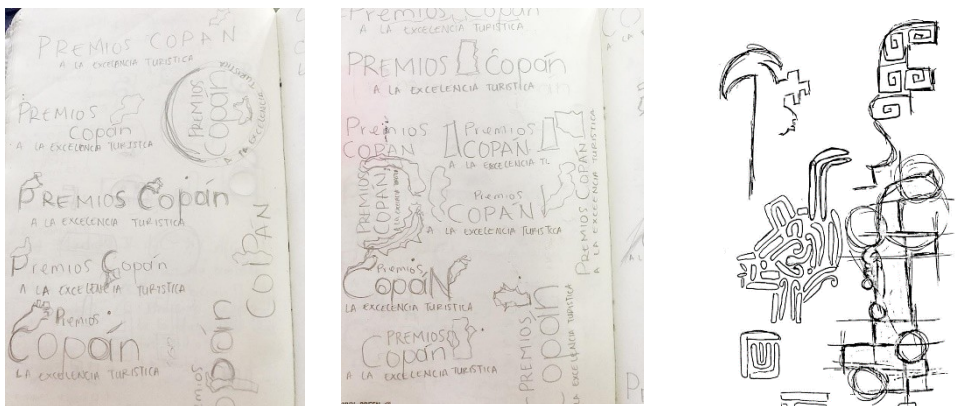 PREMIOS COPAN
A LA EXCELENCIA TURISTICA
PREMIOS
Copan
A LA EXCELENCIA
TURISTICA
PREMIOS
Copán
A LA EXCELENCIA TURISTICA
PREMIOS Copán
A LA EXCELENCIA TURISTICA
Premios Copán
A LA EXCELENCIA TURISTICA
Premios
Copán
A LA EXCELENCIA TURISTICA
COPAN
Premios Copan
A LA EXCELENCIA TURISTICA
PREMIOS Copán
A LA EXCELENCIA TURISTICA
Premios
COPAN
Premios
COPÁN
A LA EXCELENCIA TL
PREMIOS
COPAN
Premios
COPAN
A LA EXCELENCIA TURISTICA
PREMIOS COPAN
A LA EXCELENCIA TURISTICA
Premios
Copán
LA EXCELENCIA TURISTICA
PREMIOS
Copán
A LA EXCELENCIA TURISTICA
PREMIOS
Copán
A LA EXCELENCIA TURISTICA